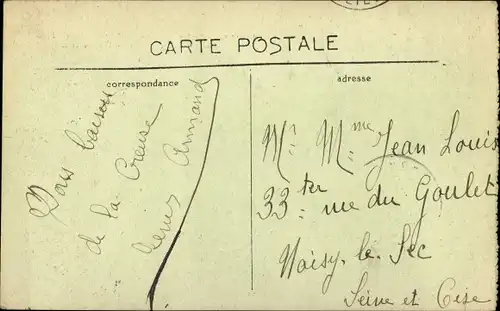 CARTE POSTALE
correspondance
adresse
Bons baisers
de la Creuse
Armand
Mr Mme Jean Louis
33 ter rue du Goulet
Noisy-le-Sec
Seine et Oise